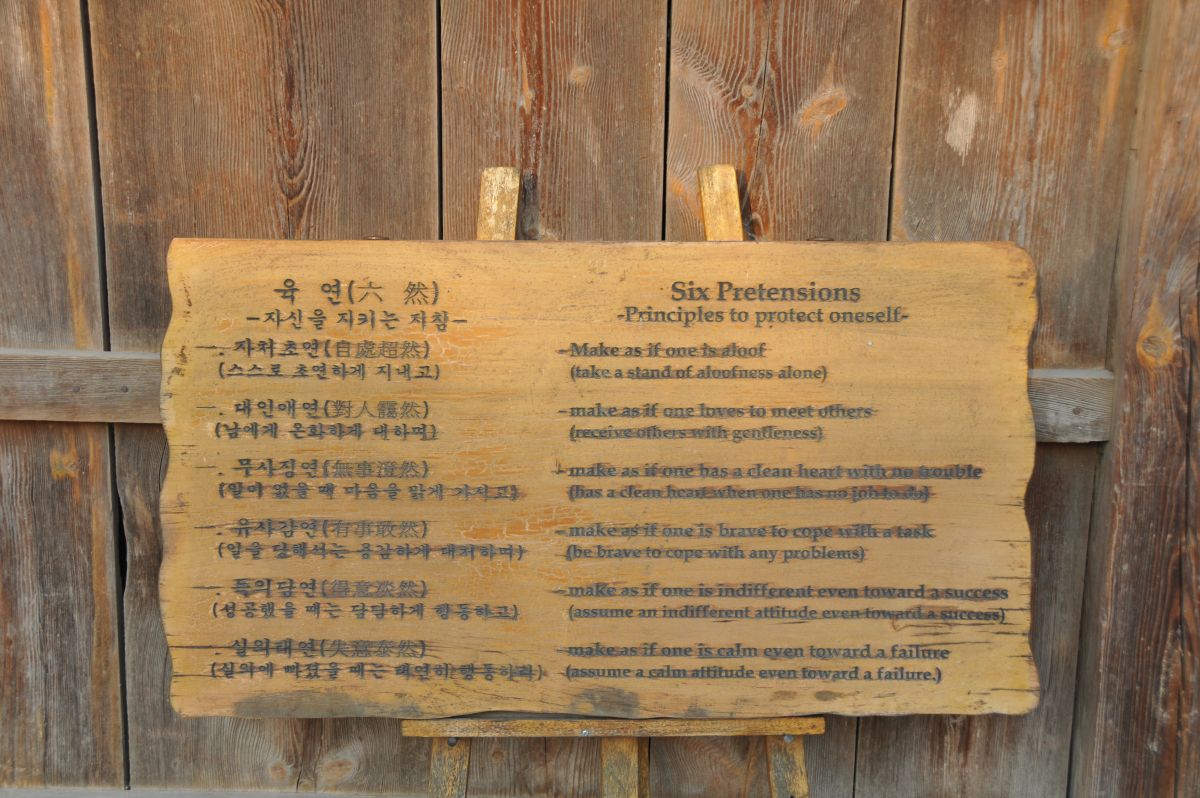 육 연(六 然)
-자신을 지키는 지침-
. 자처초연(自處超然)
(스스로 초연하게 지내고)
. 대인애연(對人靄然)
(남에게 온화하게 대하며)
. 무사징연(無事澄然)
(일이 없을 때 마음을 맑게 가지고)
. 유사감연(有事敢然)
(일을 당해서는 용감하게 대처하며)
. 득의담연(得意淡然)
(성공했을 때는 담담하게 행동하고)
. 실의태연(失意泰然)
(실의에 빠졌을 때는 태연히 행동하라)
Six Pretensions
-Principles to protect oneself-
- Make as if one is aloof
(take a stand of aloofness alone)
- make as if one loves to meet others
(receive others with gentleness)
- make as if one has a clean heart with no trouble
(has a clean heart when one has no job to do)
- make as if one is brave to cope with a task
(be brave to cope with any problems)
- make as if one is indifferent even toward a success
(assume an indifferent attitude even toward a success)
- make as if one is calm even toward a failure
(assume a calm attitude even toward a failure.)